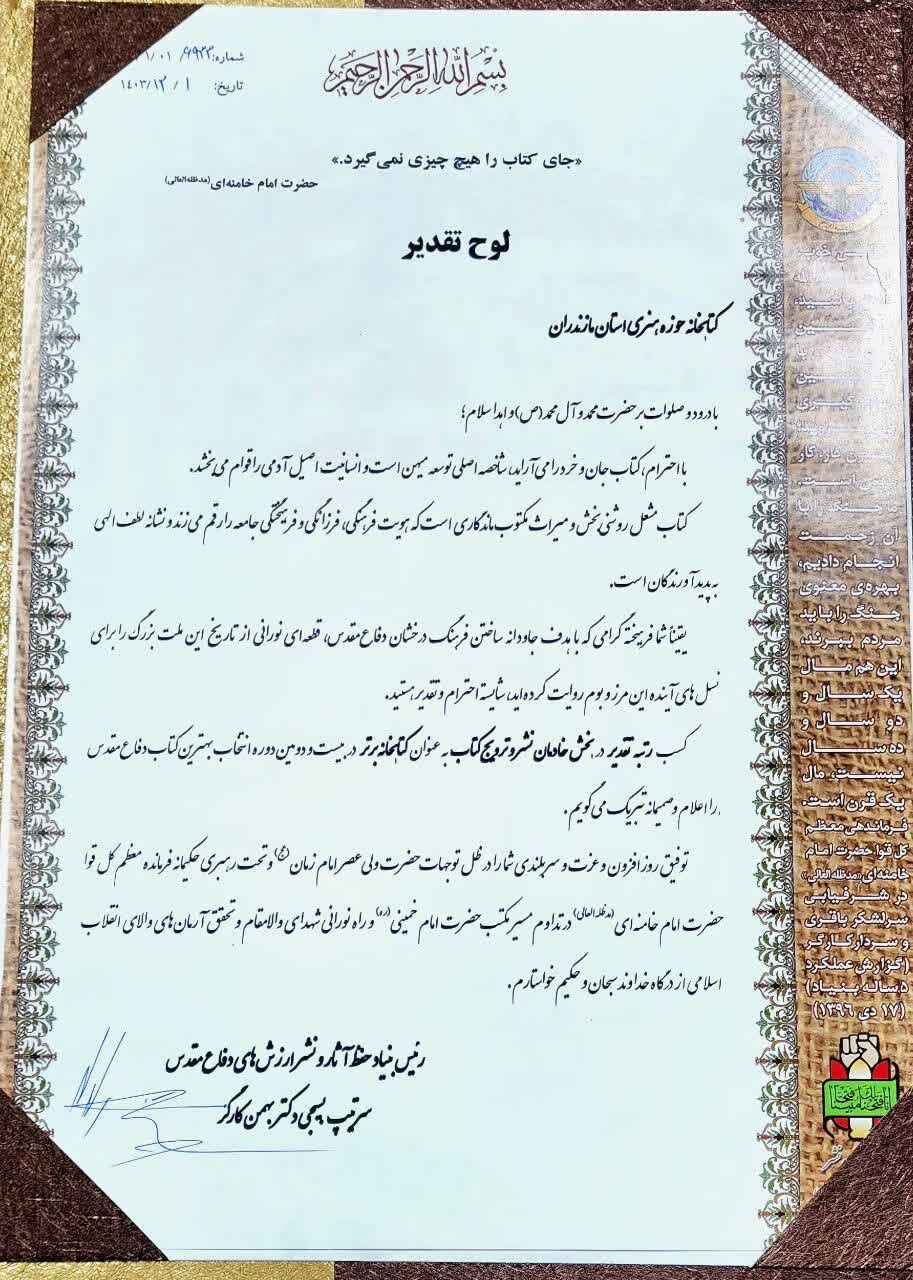 بسم الله الرحمن الرحیم
شماره: ۰۱/۶۹۲۳
تاریخ: ۱۴۰۳/۱۲/۱
«جای کتاب را هیچ چیزی نمی گیرد.»
حضرت امام خامنه‌ای (مدظله‌العالی)
لوح تقدیر
کتابخانه حوزه هنری استان مازندران
با درود و صلوات بر حضرت محمد و آل محمد (ص) و اهداء سلام؛
با احترام، کتاب جان و خرد را می آراید، شاخصه اصلی توسعه میهن است و انسانیت اصیل آدمی را قوام می بخشد.
کتاب مشعل روشنی بخش و میراث مکتوب ماندگاری است که هویت فرهنگی، فرزانگی و فرهیختگی جامعه را رقم می زند و نشانه لطف الهی
به پدیدآورندگان است.
یقیناً شما فرهیخته گرامی که با هدف جاودانه ساختن فرهنگ درخشان دفاع مقدس، قطعه ای نورانی از تاریخ این ملت بزرگ را برای
نسل های آینده این مرز و بوم روایت کرده اید، شایسته احترام و تقدیر هستید.
کسب رتبه تقدیر در بخش خادمان نشر و ترویج کتاب به عنوان کتابخانه برتر در بیست و دومین دوره انتخاب بهترین کتاب دفاع مقدس
را اعلام و صمیمانه تبریک می گویم.
توفیق روز افزون و عزت و سربلندی شما را در ظل توجهات حضرت ولی عصر امام زمان (عج) و تحت رهبری حکیمانه فرمانده معظم کل قوا
حضرت امام خامنه ای (مدظله العالی) در تداوم مسیر مکتب حضرت امام خمینی (ره) و راه نورانی شهدای والامقام و تحقق آرمان های والای انقلاب
اسلامی از درگاه خداوند سبحان و حکیم خواستارم.
رئیس بنیاد حفظ آثار و نشر ارزش های دفاع مقدس
سرتیپ بسیجی دکتر بهمن کارگر
ان زحمت
انجام دادیم،
بهره‌ی معنوی
جنگ را باید
مردم ببرند،
این هم مال
یک سال و
دو سال و
ده سال
نیست، مال
یک قرن است.
فرماندهی معظم
کل قوا حضرت امام
خامنه‌ای «مدظله العالی»
در شرفیابی
سرلشکر باقری
و سردار کارگر
(گزارش عملکرد
۵ ساله بنیاد)
(۱۷ دی ۱۳۹۶)
انا فتحنا لک فتحا مبینا